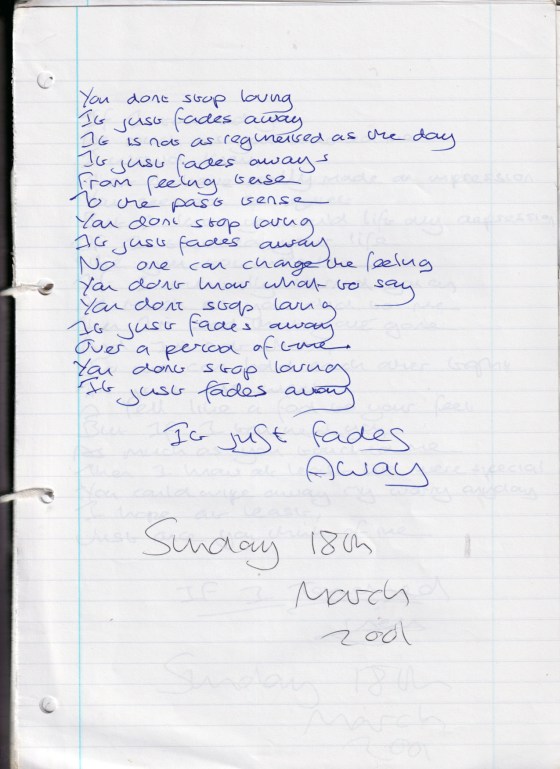 You dont stop loving
It just fades away
It is not as regimented as the day
It just fades aways
From feeling tense
To the past tense
You dont stop loving
It just fades away
No one can change the feeling
You dont know what to say
You dont stop loving
It just fades away
Over a period of time
You dont stop loving
It just fades away
It just fades
Away
Sunday 18th
March
2001